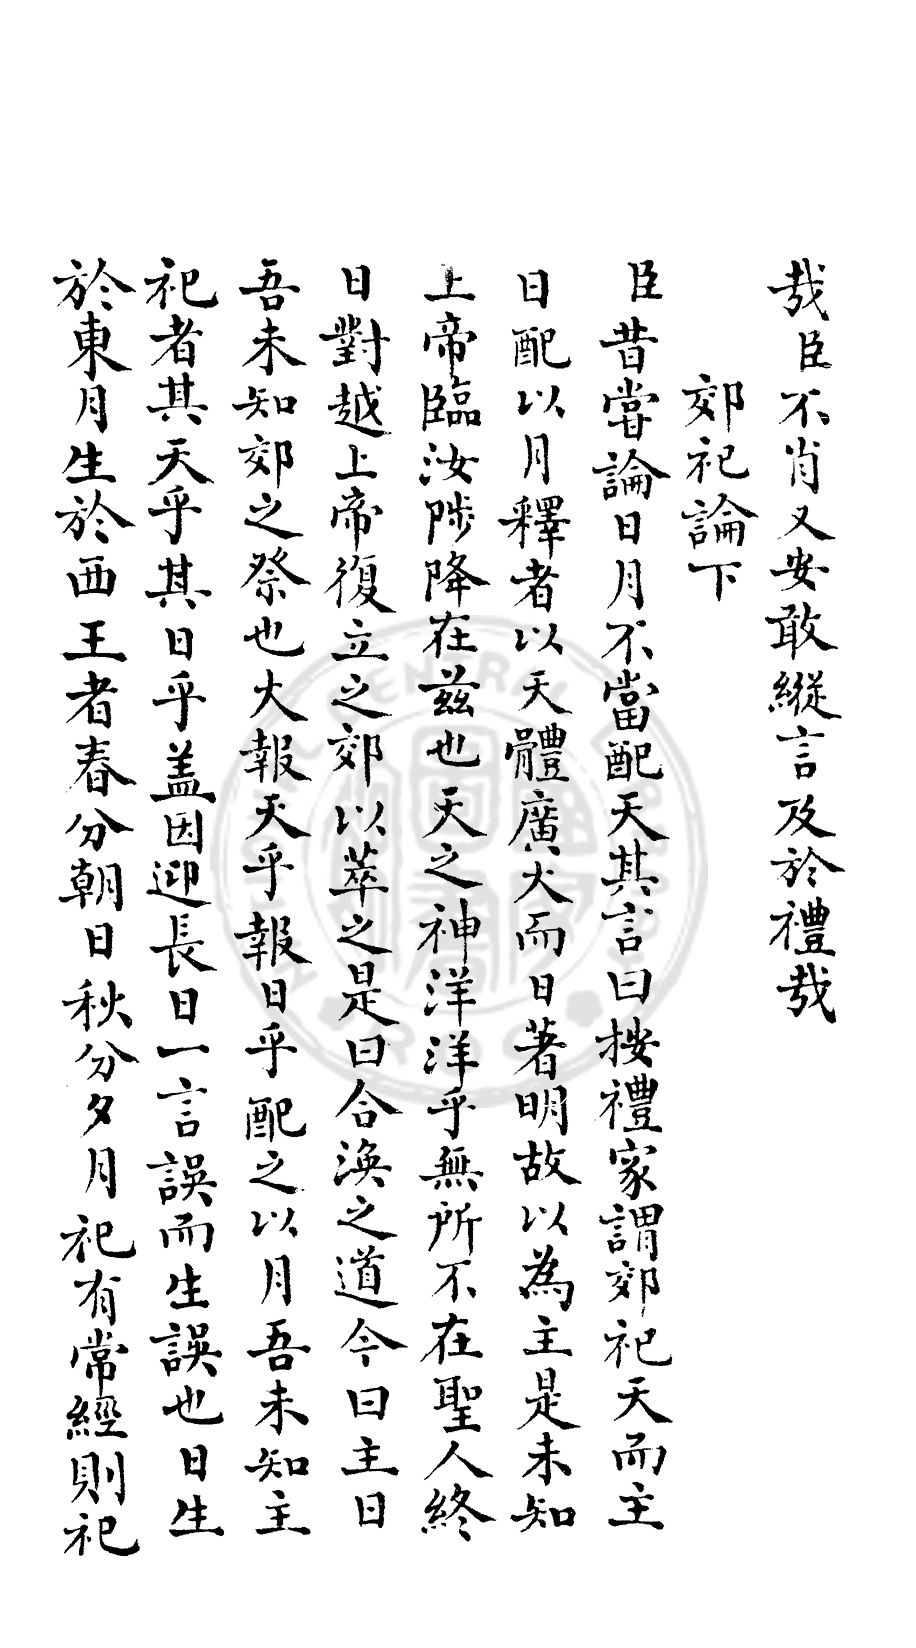 哉臣不肖又安敢縱言及於禮哉
郊祀論下
臣昔嘗論日月不當配天其言曰按禮家謂郊祀天而主
日配以月釋者以天體廣大而日著明故以為主是未知
上帝臨汝陟降在茲也天之神洋洋乎無所不在聖人終
日對越上帝復立之郊以萃之是曰合渙之道今曰主日
吾未知郊之祭也大報天乎報日乎配之以月吾未知主
祀者其天乎其日乎盖因迎長日一言誤而生誤也日生
於東月生於西王者春分朝日秋分夕月祀有常經則祀
NATIONAL CENTRAL LIBRARY
R.O.C